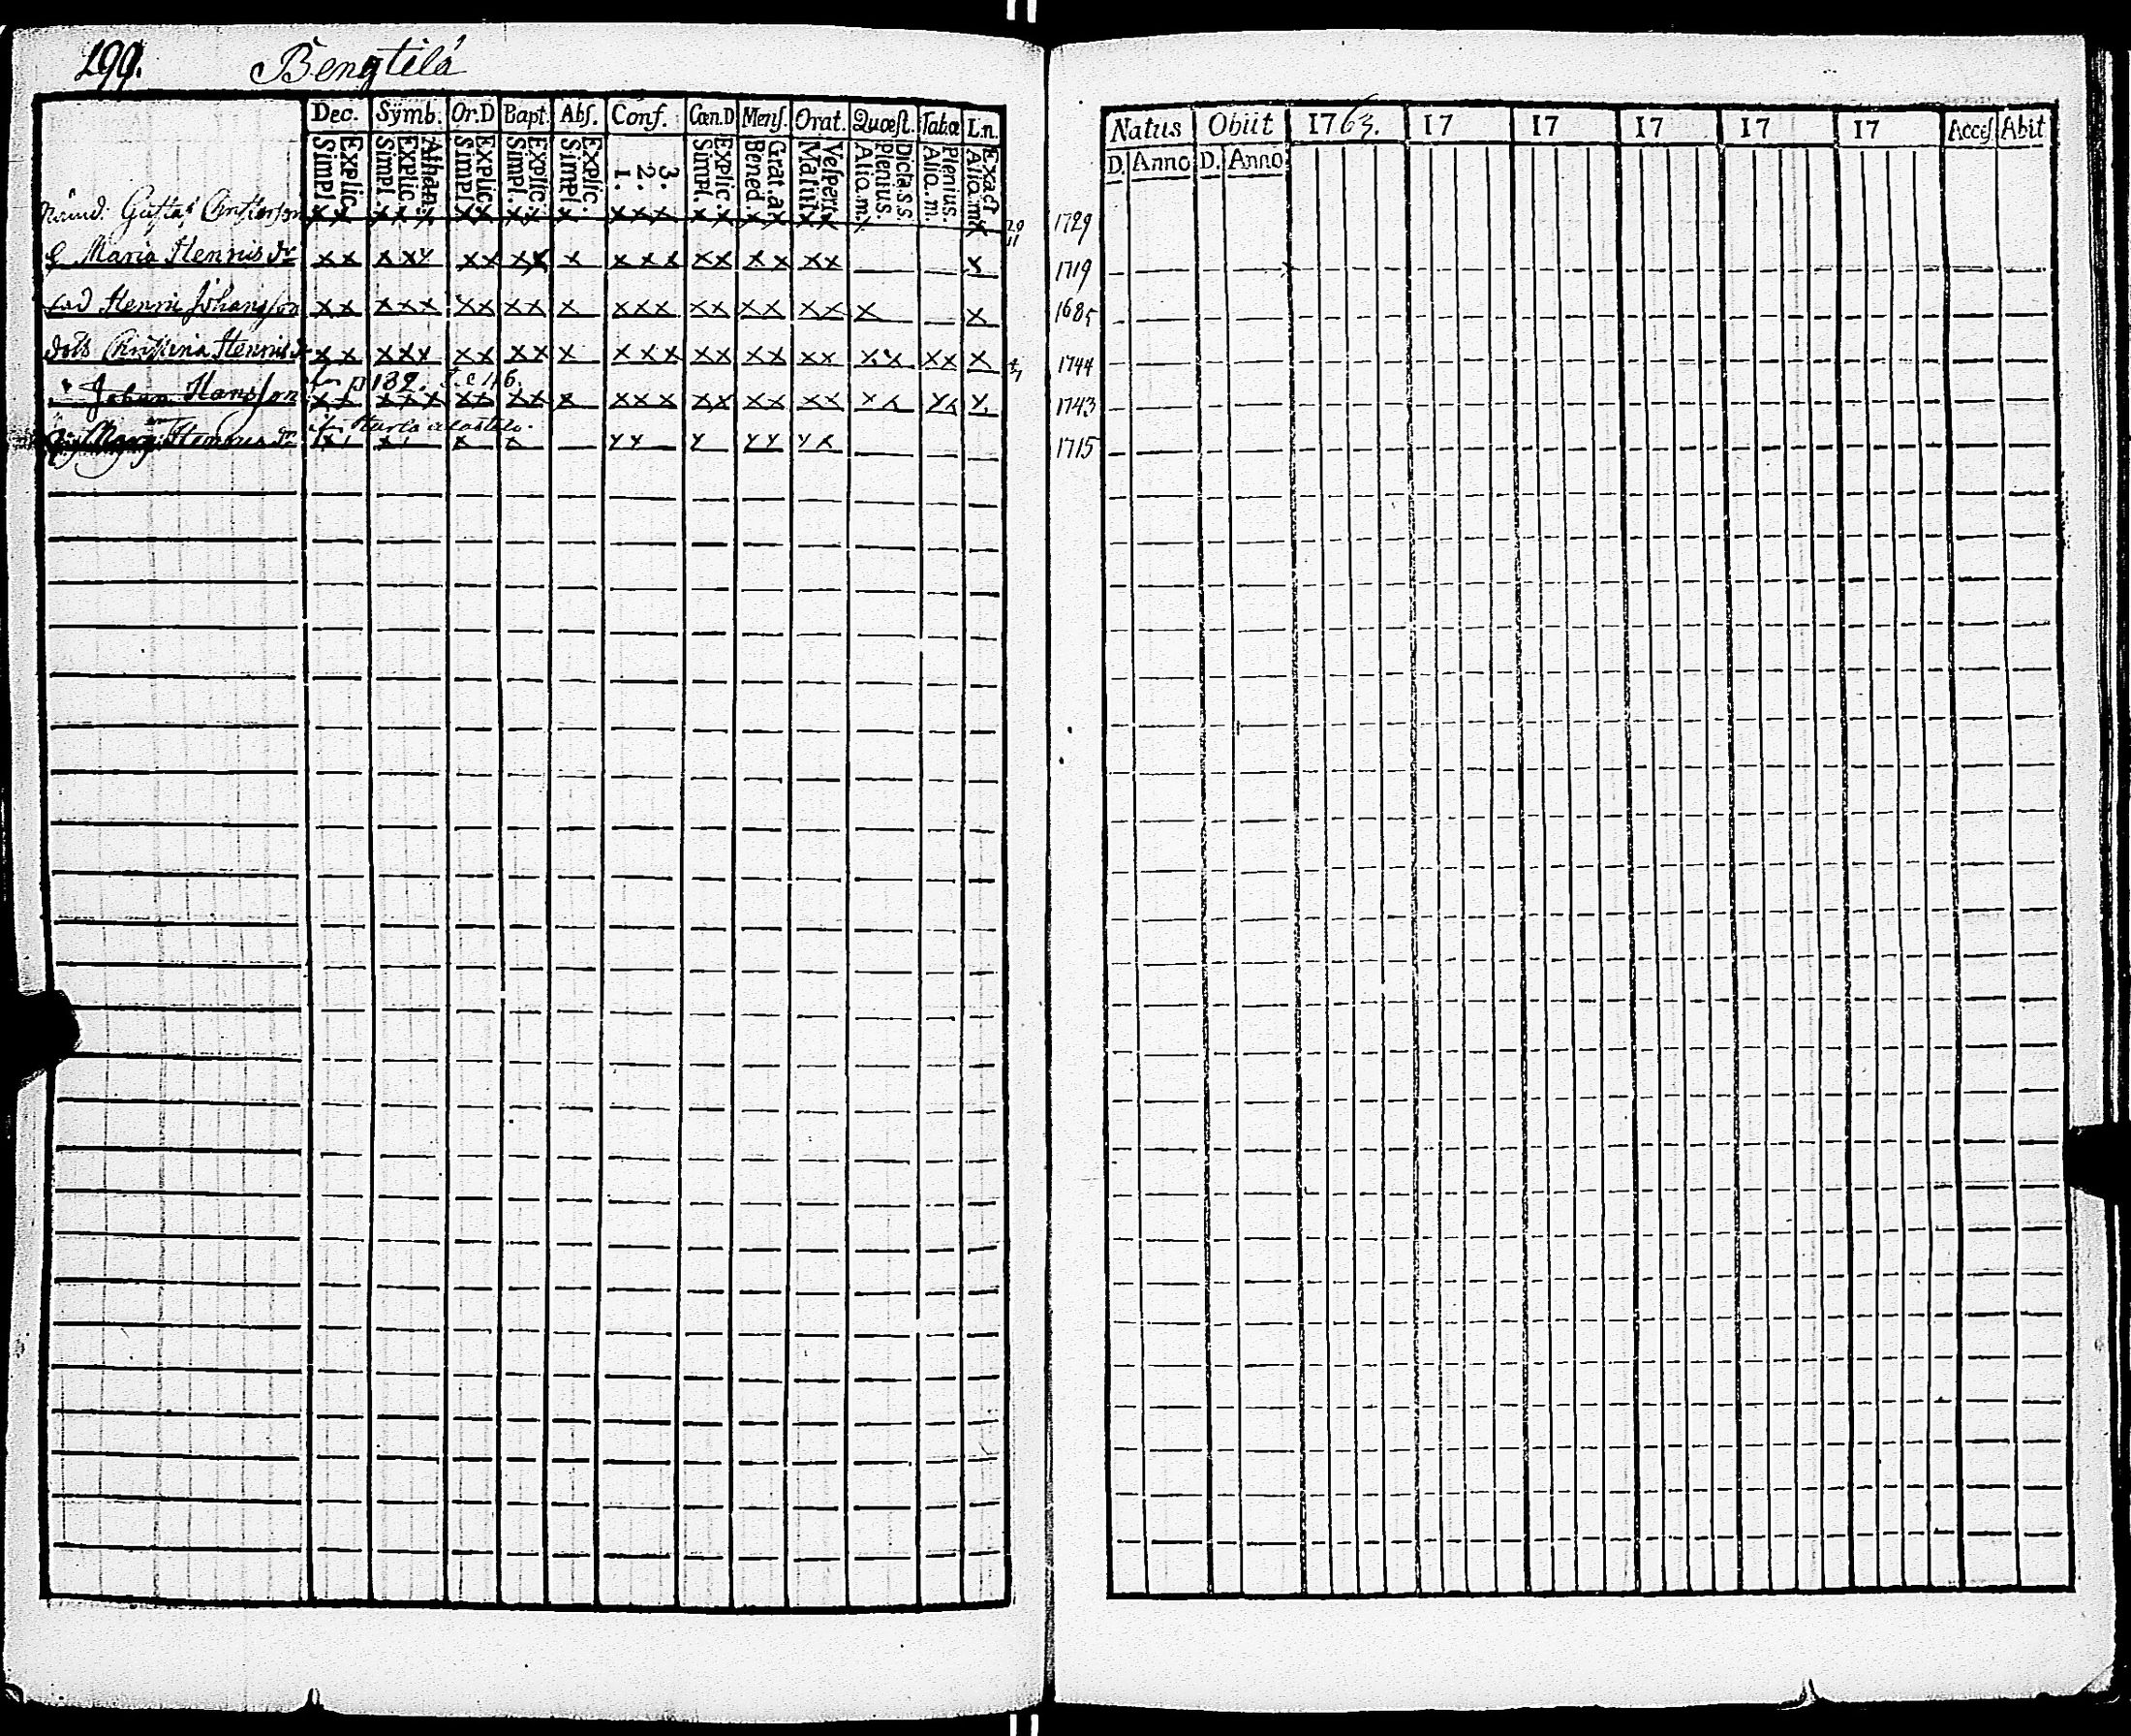 199. Bengtilá
Dec. Symb. Or.D Bapt. Abſ. Conf. Cœn.D Menſ. Orat. Quæſt. Tabæ L.n.
Explic. Simpl. Athan. Explic. Simpl. Explic. Simpl. Explic. Simpl. Explic. Simpl. 3. 2. 1. Explic. Simpl. Grat. a Bened. Veſpert Matut Dicta.s.s. Plenius. Alio.m. Plenius. Alio.m. Exact Alio.m
Gustaf x x x x x x x x x x x x x x x x x x x x
Maria Hennis dr x x x x x x x x x x x x x x x x x x x x
Henric Johansson x x x x x x x x x x x x x x x x x x x x
Christina Hennis dr x x x x x x x x x x x x x x x x x x x x x x x x
p 132.
Johan Hansson x x x x x x x x x x x x x x x x x x x x x x x x
Hennis dr x x x x x x x x x x x
Natus Obiit 1763. 17 17 17 17 17 Acceſ Abit
D. Anno D. Anno
1729
1719
1685
1744
1743
1715